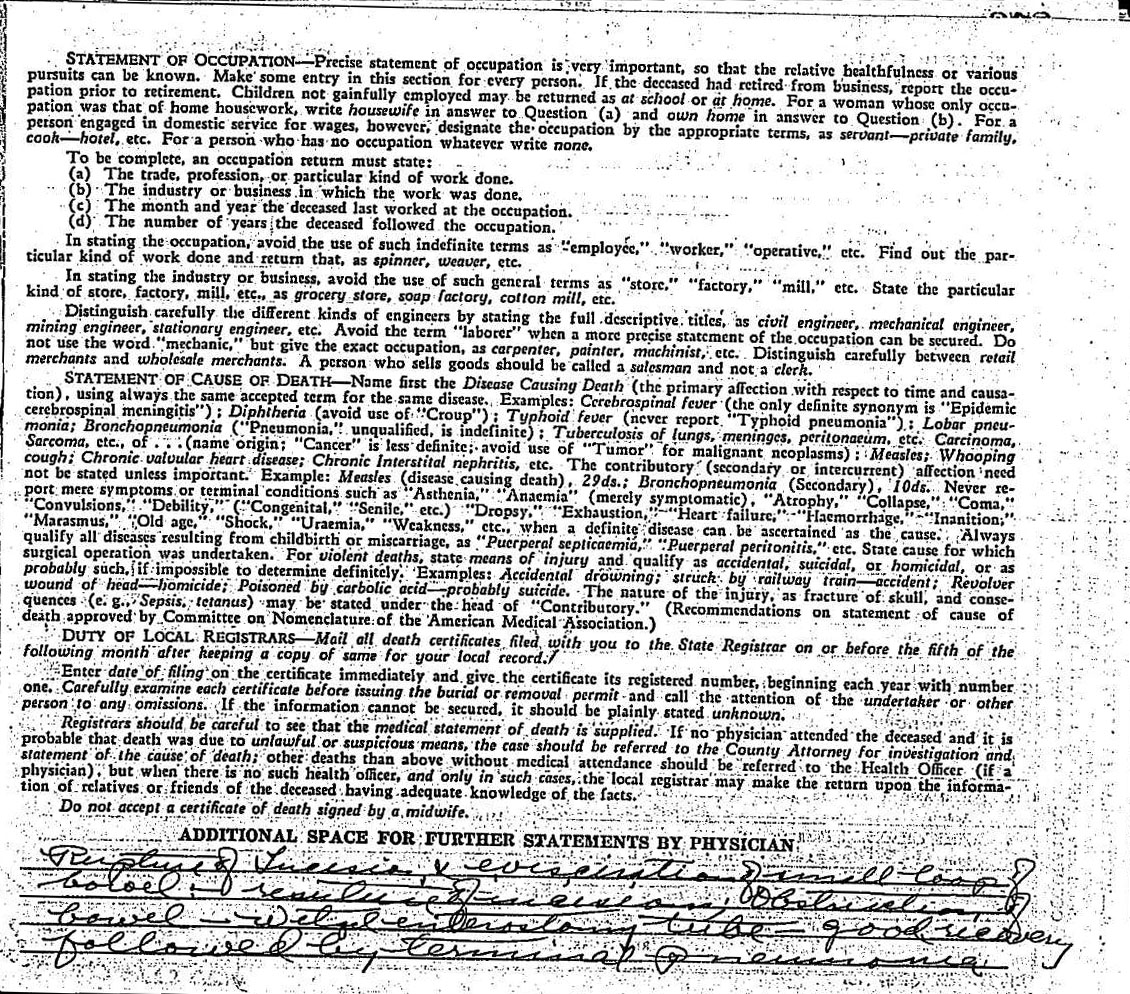 STATEMENT OF OCCUPATION—Precise statement of occupation is very important, so that the relative healthfulness or various
pursuits can be known. Make some entry in this section for every person. If the deceased had retired from business, report the occu-
pation prior to retirement. Children not gainfully employed may be returned as at school or at home. For a woman whose only occu-
pation was that of home housework, write housewife in answer to Question (a) and own home in answer to Question (b). For a
person engaged in domestic service for wages, however, designate the occupation by the appropriate terms, as servant—private family,
cook—hotel, etc. For a person who has no occupation whatever write none.
To be complete, an occupation return must state:
(a) The trade, profession, or particular kind of work done.
(b) The industry or business in which the work was done.
(c) The month and year the deceased last worked at the occupation.
(d) The number of years the deceased followed the occupation.
In stating the occupation, avoid the use of such indefinite terms as "employee," "worker," "operative," etc. Find out the par-
ticular kind of work done and return that, as spinner, weaver, etc.
In stating the industry or business, avoid the use of such general terms as "store," "factory," "mill," etc. State the particular
kind of store, factory, mill, etc., as grocery store, soap factory, cotton mill, etc.
Distinguish carefully the different kinds of engineers by stating the full descriptive titles, as civil engineer, mechanical engineer,
mining engineer, stationary engineer, etc. Avoid the term "laborer" when a more precise statement of the occupation can be secured. Do
not use the word "mechanic," but give the exact occupation, as carpenter, painter, machinist, etc. Distinguish carefully between retail
merchants and wholesale merchants. A person who sells goods should be called a salesman and not a clerk.
STATEMENT OF CAUSE OF DEATH—Name first the Disease Causing Death (the primary affection with respect to time and causa-
tion), using always the same accepted term for the same disease. Examples: Cerebrospinal fever (the only definite synonym is "Epidemic
cerebrospinal meningitis"); Diphtheria (avoid use of "Croup"); Typhoid fever (never report "Typhoid pneumonia"); Lobar pneu-
monia; Bronchopneumonia ("Pneumonia," unqualified, is indefinite); Tuberculosis of lungs, meninges, peritonaeum, etc. Carcinoma,
Sarcoma, etc., of . . . (name origin; "Cancer" is less definite; avoid use of "Tumor" for malignant neoplasms); Measles; Whooping
cough; Chronic valvular heart disease; Chronic Interstital nephritis, etc. The contributory (secondary or intercurrent) affection need
not be stated unless important. Example: Measles (disease causing death), 29ds.; Bronchopneumonia (Secondary), 10ds. Never re-
port mere symptoms or terminal conditions such as "Asthenia," "Anaemia" (merely symptomatic), "Atrophy," "Collapse," "Coma,"
"Convulsions," "Debility," ("Congenital," "Senile," etc.) "Dropsy," "Exhaustion," "Heart failure," "Haemorrhage," "Inanition,"
"Marasmus," "Old age," "Shock," "Uraemia," "Weakness," etc., when a definite disease can be ascertained as the cause. Always
qualify all diseases resulting from childbirth or miscarriage, as "Puerperal septicaemia," "Puerperal peritonitis," etc. State cause for which
surgical operation was undertaken. For violent deaths, state means of injury and qualify as accidental, suicidal, or homicidal, or as
probably such, if impossible to determine definitely. Examples: Accidental drowning; struck by railway train—accident; Revolver
wound of head—homicide; Poisoned by carbolic acid—probably suicide. The nature of the injury, as fracture of skull, and conse-
quences (e. g., Sepsis, tetanus) may be stated under the head of "Contributory." (Recommendations on statement of cause of
death approved by Committee on Nomenclature of the American Medical Association.)
DUTY OF LOCAL REGISTRARS—Mail all death certificates filed with you to the State Registrar on or before the fifth of the
following month after keeping a copy of same for your local record.
Enter date of filing on the certificate immediately and give the certificate its registered number, beginning each year with number
one. Carefully examine each certificate before issuing the burial or removal permit and call the attention of the undertaker or other
person to any omissions. If the information cannot be secured, it should be plainly stated unknown.
Registrars should be careful to see that the medical statement of death is supplied. If no physician attended the deceased and it is
probable that death was due to unlawful or suspicious means, the case should be referred to the County Attorney for investigation and
statement of the cause of death; other deaths than above without medical attendance should be referred to the Health Officer (if a
physician), but when there is no such health officer, and only in such cases, the local registrar may make the return upon the informa-
tion of relatives or friends of the deceased having adequate knowledge of the facts.
Do not accept a certificate of death signed by a midwife.
ADDITIONAL SPACE FOR FURTHER STATEMENTS BY PHYSICIAN
Rupture of Incision & evisceration of small loop of
bowel - resuture of incision, Obstruction of
bowel - Welch enterostomy tube - good recovery
followed by terminal Pneumonia